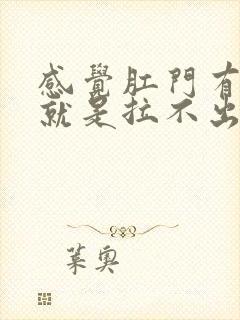 感覺肛門有
就是拉不出
葉奧